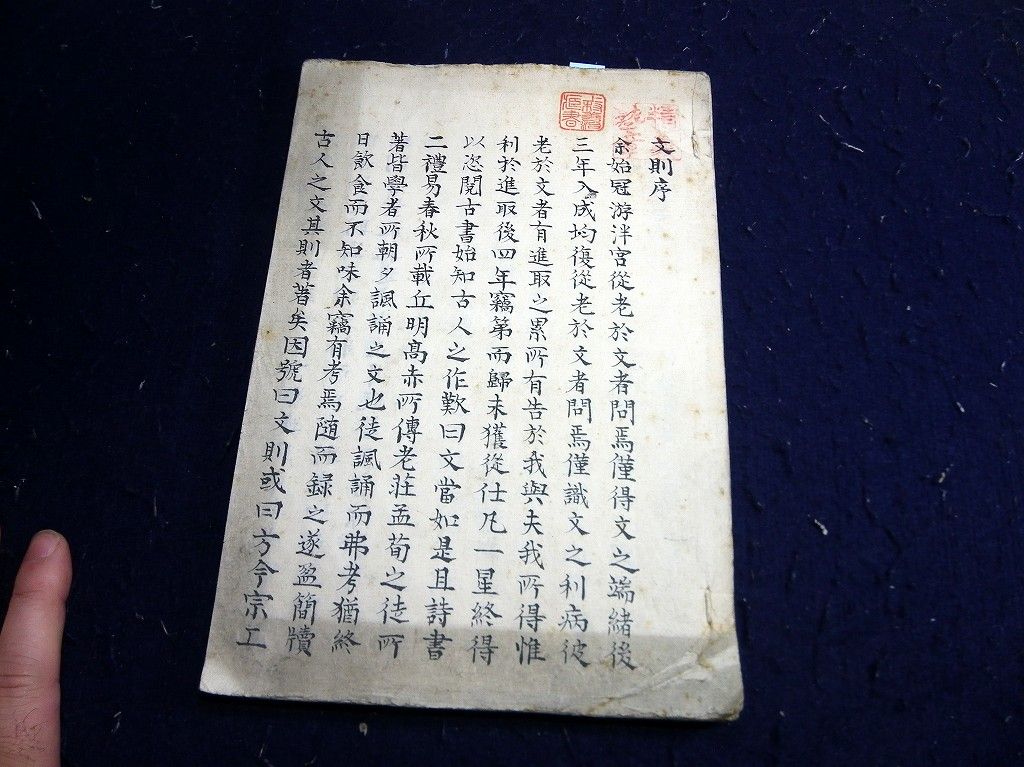 文則序
余始冠游泮宮從老於文者問焉僅得文之端緒後
三年入成均復從老於文者問焉僅識文之利病彼
老於文者有進取之累所有告於我與夫我所得惟
利於進取後四年竊第而歸未獲從仕凡一星終得
以恣閱古書始知古人之作歎曰文當如是且詩書
二禮易春秋所載丘明高赤所傳老莊孟荀之徒所
著皆學者所朝夕諷誦之文也徒諷誦而弗考猶終
日飲食而不知味余竊有考焉随而録之遂盈簡牘
古人之文其則者著矣因號曰文則或曰方今宗工